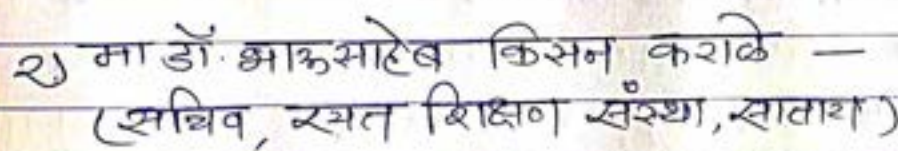 २) मा डॉ. भाऊसाहेब किसन कराळे —
(सचिव, रयत शिक्षण संस्था, सातारा)